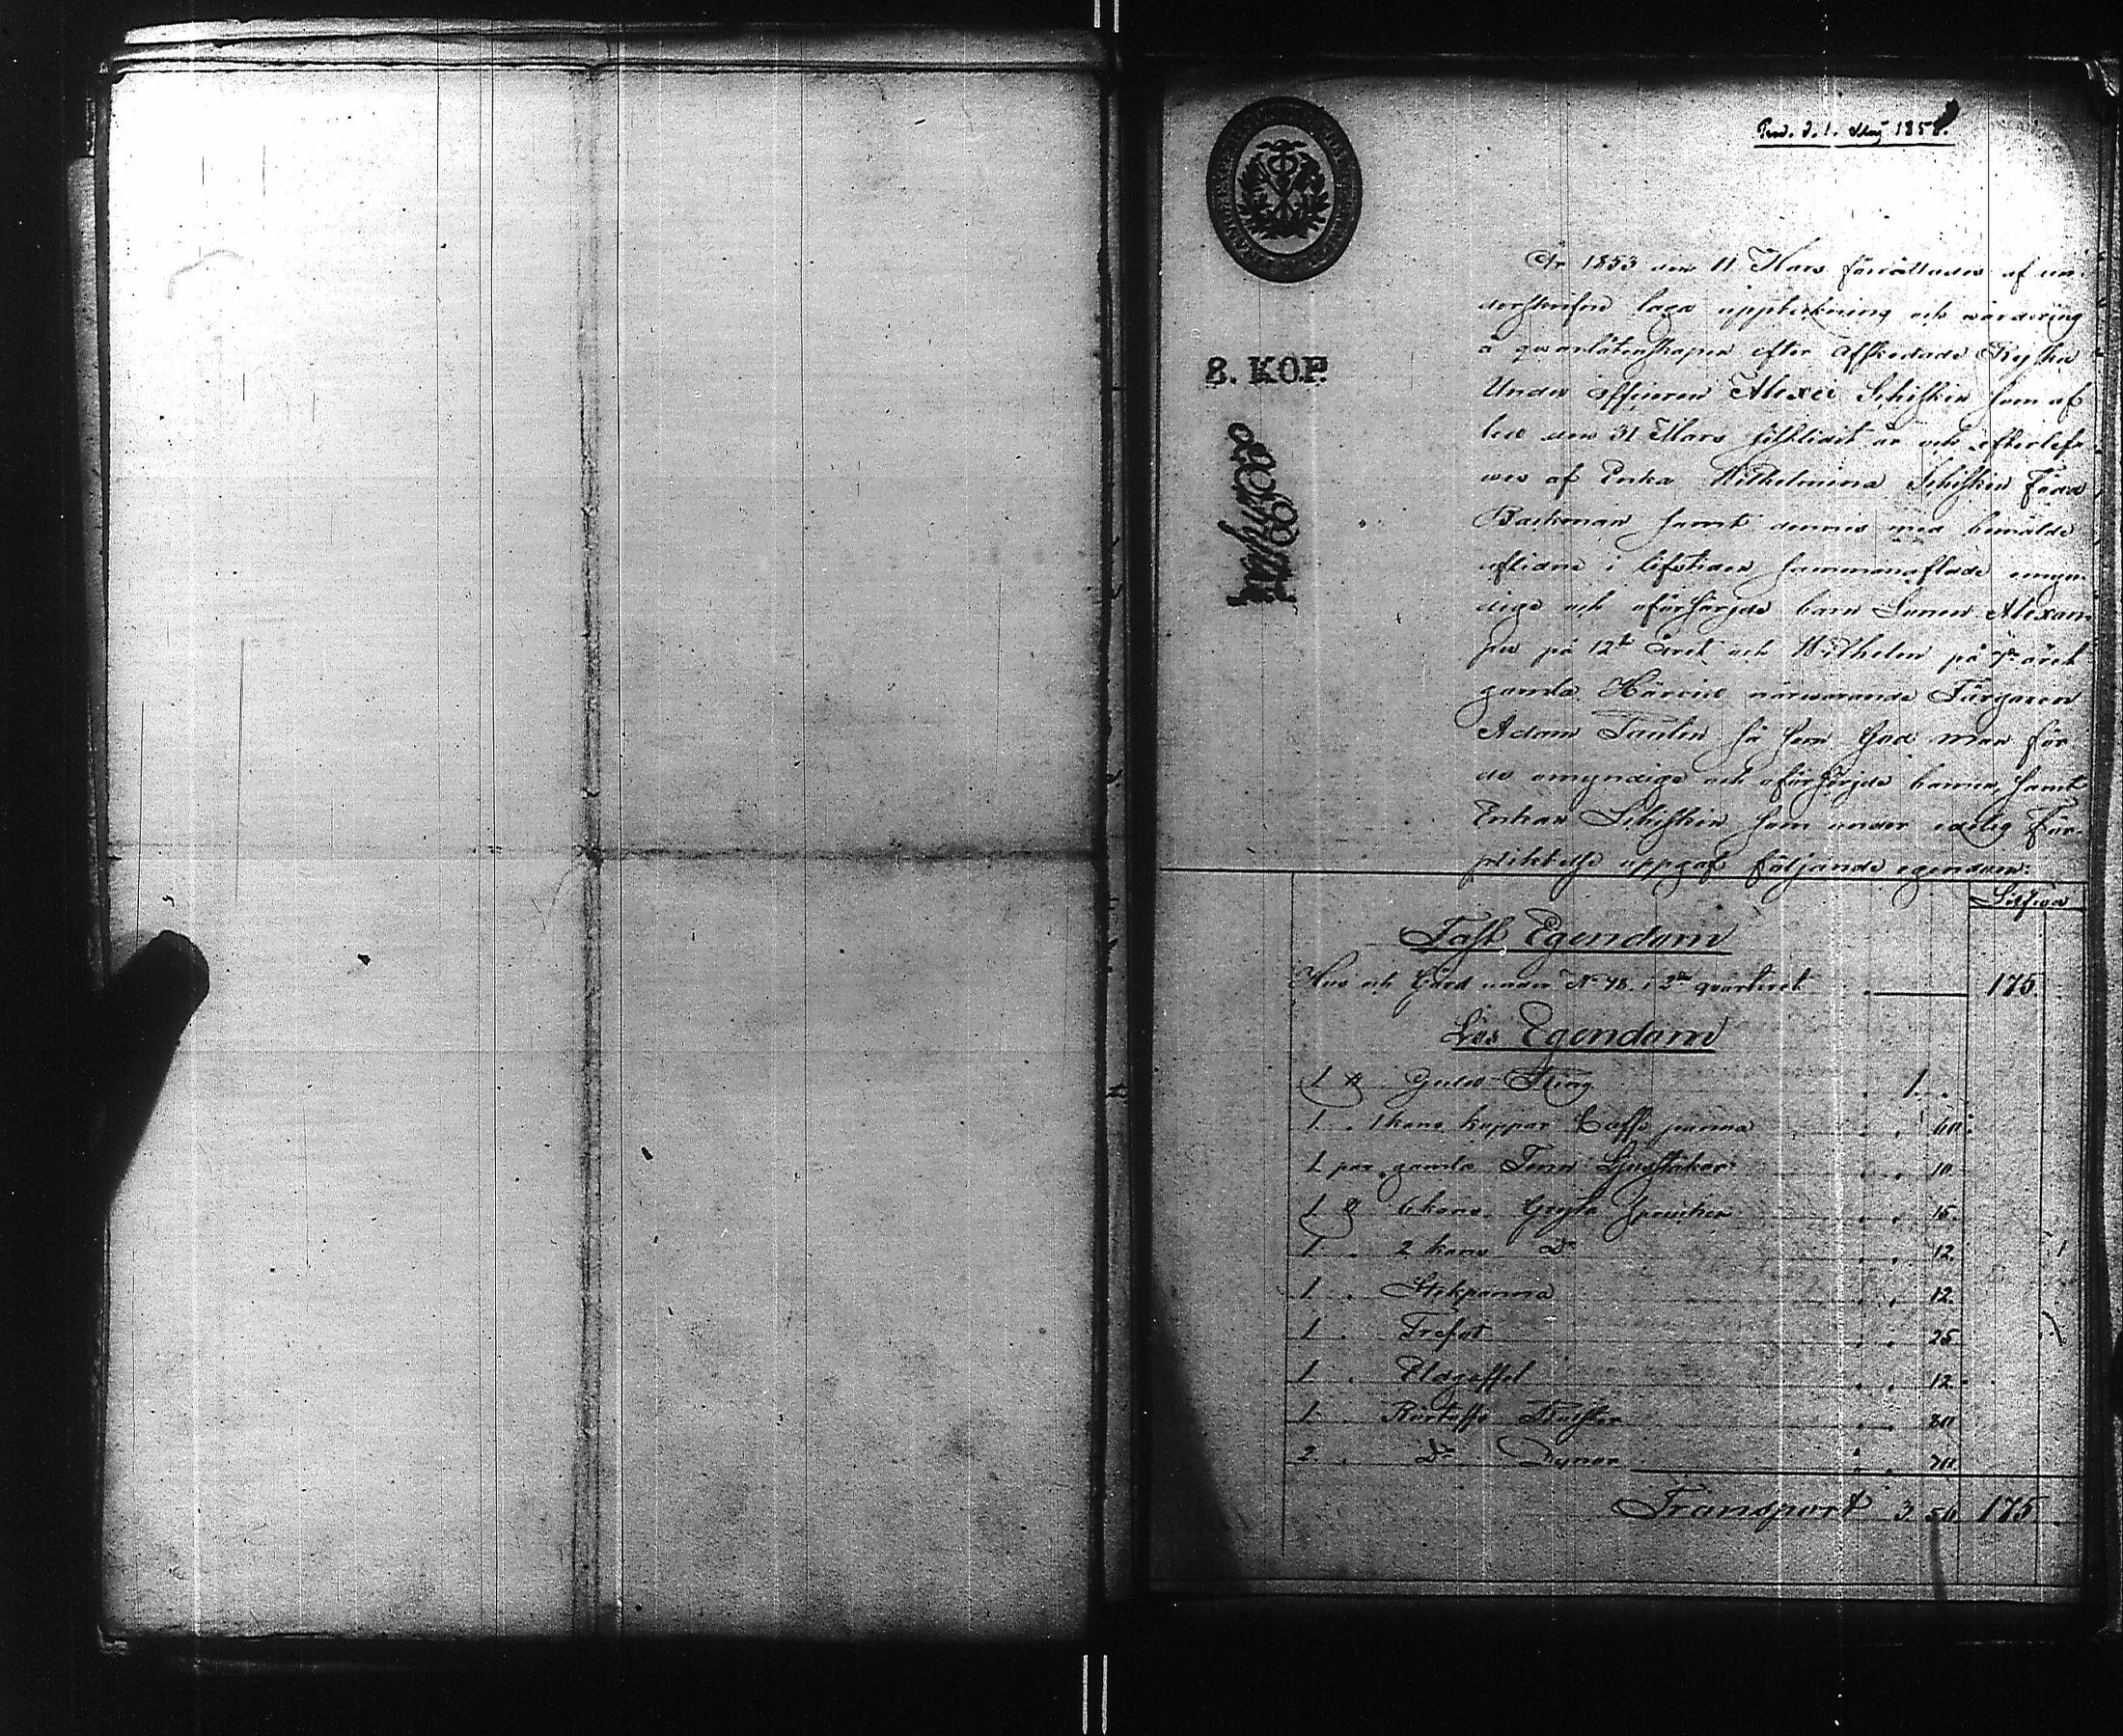 Prod. d. 1. Maj 1858.
År 1853 den 11 Mars förrättades af un-
derskrifne laga uppteckning och värdering
å qvarlåtenskapen efter Afskedade Ryska
Under officeren Alexei Schiskin som af
led den 31 Mars sistlidit år och efterlef-
wes af Enka Wilhelmina Schiskin född
Backman samt dennes med bemälde
aflidne i lifstiden sammanaflade omyn-
dige och oförsörjde barn Sonen Alexan-
på 12te året och Wilhelm på 7de året
gamla. Härvid närvarande Färgaren
Adam Taulin så som God man för
de omyndige och oförsörjde barnen, samt
Enkan Schiskin som under edelig För-
pliktelse uppgaf följande egendom:
8. KOP.
Silfver
Fast Egendom
Hus och Gård under No 78. i 2dra qvarteret 175.
Lös Egendom
1 st Guld-Ring 1. .
1 . 1 kans koppar Caffe panna . . 60.
1 par gamla Tenn Ljusstakar . . 10.
1 st 6 kans Gryta . . 15.
1 . 2 kans Do . . 12.
1 . Stekpanna . . 12.
1 . Trefot . . 25.
1 . Eldgaffel . . 12.
1 . . . 80
2. . Do Dynor . . 70
Transport 3 56 175 .